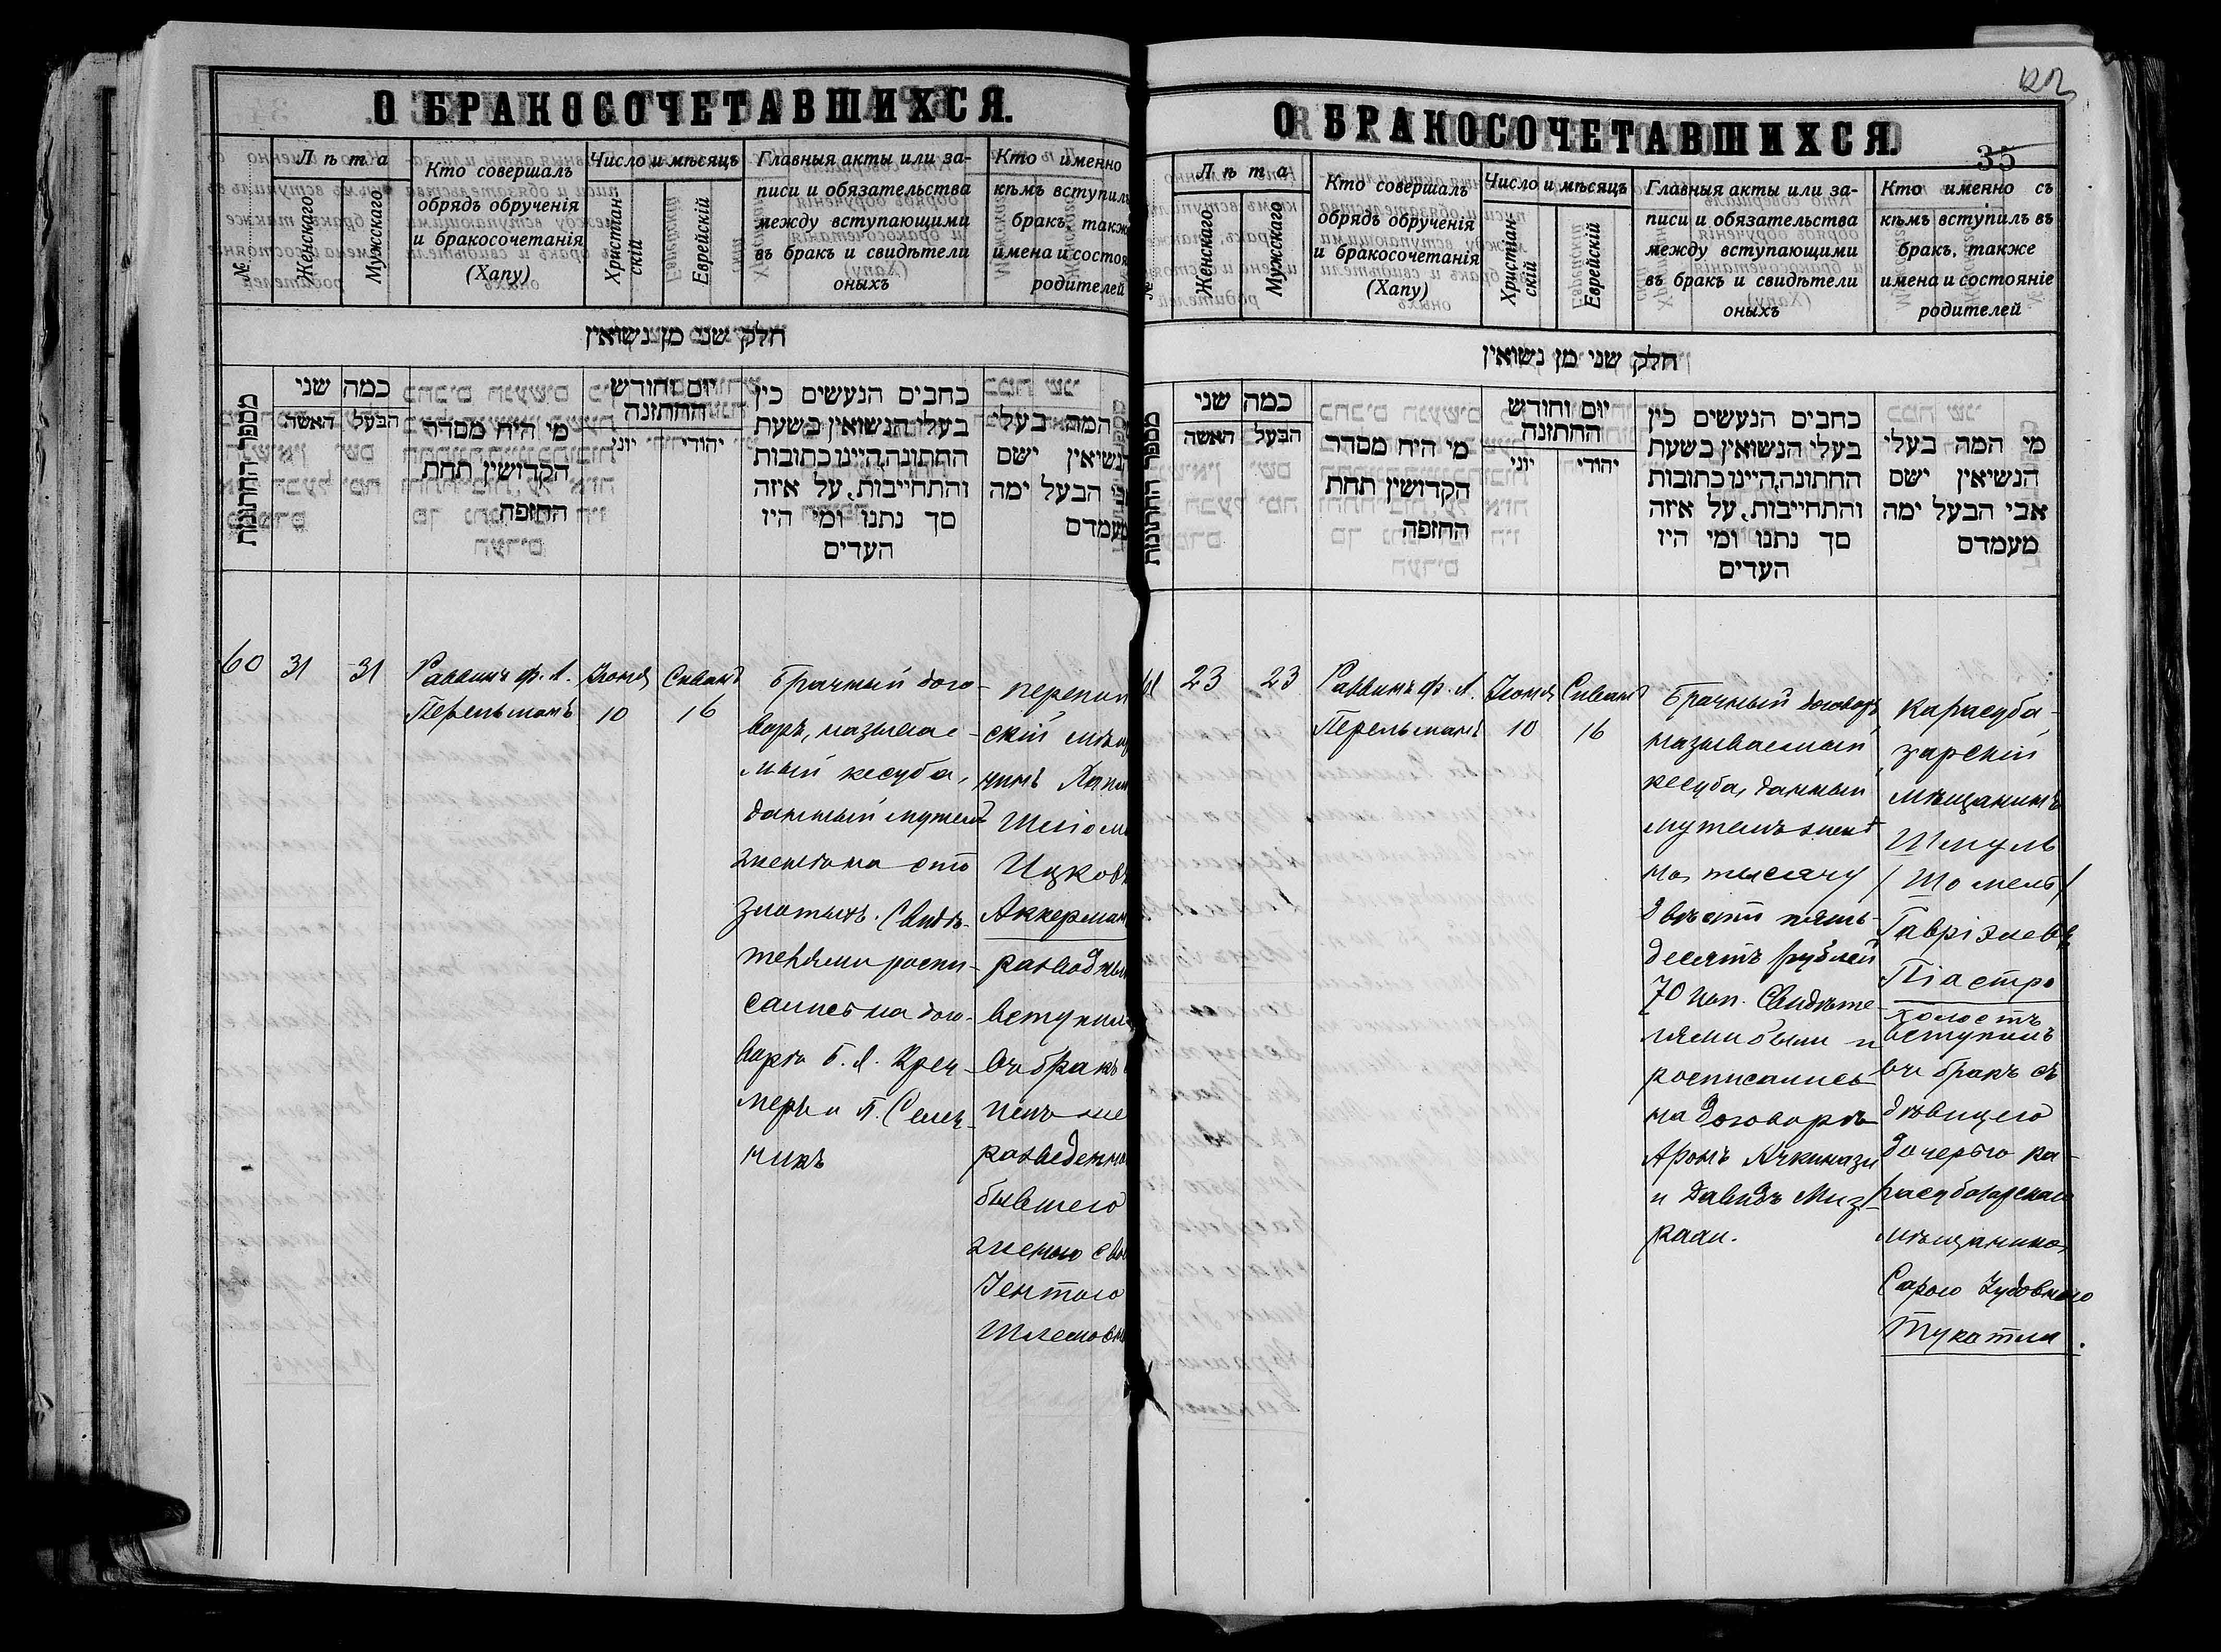 О БРАКОСОЧЕТАВШИХСЯ.
№
Лѣта
Женскаго
Мужскаго
Кто совершалъ
обрядъ обрученія
и бракосочетанія
(Хапу)
Число и мѣсяцъ
Христіан-
скій
Еврейскій
Главныя акты или за-
писи и обязательства
между вступающими
въ бракъ и свидѣтели
оныхъ
Кто именно
кѣмъ вступилъ
бракъ, также
имена и состоя
родителей
חלק שני מן נשואין
מספר החתונות
כמה שני
האשה
הבעל
מי היח מסדר
הקדושין תחת
החופה
יום וחודש
החתונה
יוני
יהודי
כחבים הנעשים כין
בעלי הנשואין בשעת
החתונה,היינו כתובות
והתחייבות, על איזה
סך נתנו ומי היו
העדים
המה בעלי
הנשיאין ישם
הבעל ימה
מעמדם
60
31
31
Раввинъ Ф. Л.
Перельманъ
Іюня
10
Сиванъ
16
Брачный дого-
воръ, называе-
мый кесуба,
данный мужемъ
жене на сто
злотыхъ. Свидѣ-
телями роспи-
сались на дого-
ворѣ Б. Я. Креч-
меръ и
никъ
перекоп
скій мѣщ
нинъ Хаим
Шліома
Ицковъ
Аккерман
разводный
вступил
въ бракъ
разведенно
бывшею
женою сво
Іентою
Шлемовн
О БРАКОСОЧЕТАВШИХСЯ.
35
№
Лѣта
Женскаго
Мужскаго
Кто совершалъ
обрядъ обрученія
и бракосочетанія
(Хапу)
Число и мѣсяцъ
Христіан-
скій
Еврейскій
Главныя акты или за-
писи и обязательства
между вступающими
въ бракъ и свидѣтели
оныхъ
Кто именно съ
кѣмъ вступилъ въ
бракъ, также
имена и состояніе
родителей
חלק שני מן נשואין
מספר החתונות
כמה שני
האשה
הבעל
מי היח מסדר
הקדושין תחת
החופה
יום וחודש
החתונה
יוני
יהודי
כחבים הנעשים כין
בעלי הנשואין בשעת
החתונה,היינו כתובות
והתחייבות, על איזה
סך נתנו ומי היו
העדים
מי המה בעלי
הנשיאין ישם
אבי הבעל ימה
מעמדם
61
23
23
Раввинъ Ф. Л.
Перельманъ
Іюня
10
Сиванъ
16
Брачный договоръ,
называемый
кесуба, данный
мужемъ женѣ
на тысячу
двѣсти пять-
десятъ рублей
70 коп. Свидѣте-
лями были и
росписались
на договорѣ
Аронъ Ачкинази
и Давидъ Миз-
рахи.
карасуба-
зарскій
мѣщанинъ
Шмуль
/Шомель/
Гавріэлевъ
Піастро
холостъ
вступилъ
въ бракъ съ
дѣвицею
дочерью ка-
расубазарскаго
мѣщанина
Сарою Іудовною
Тукатлы.